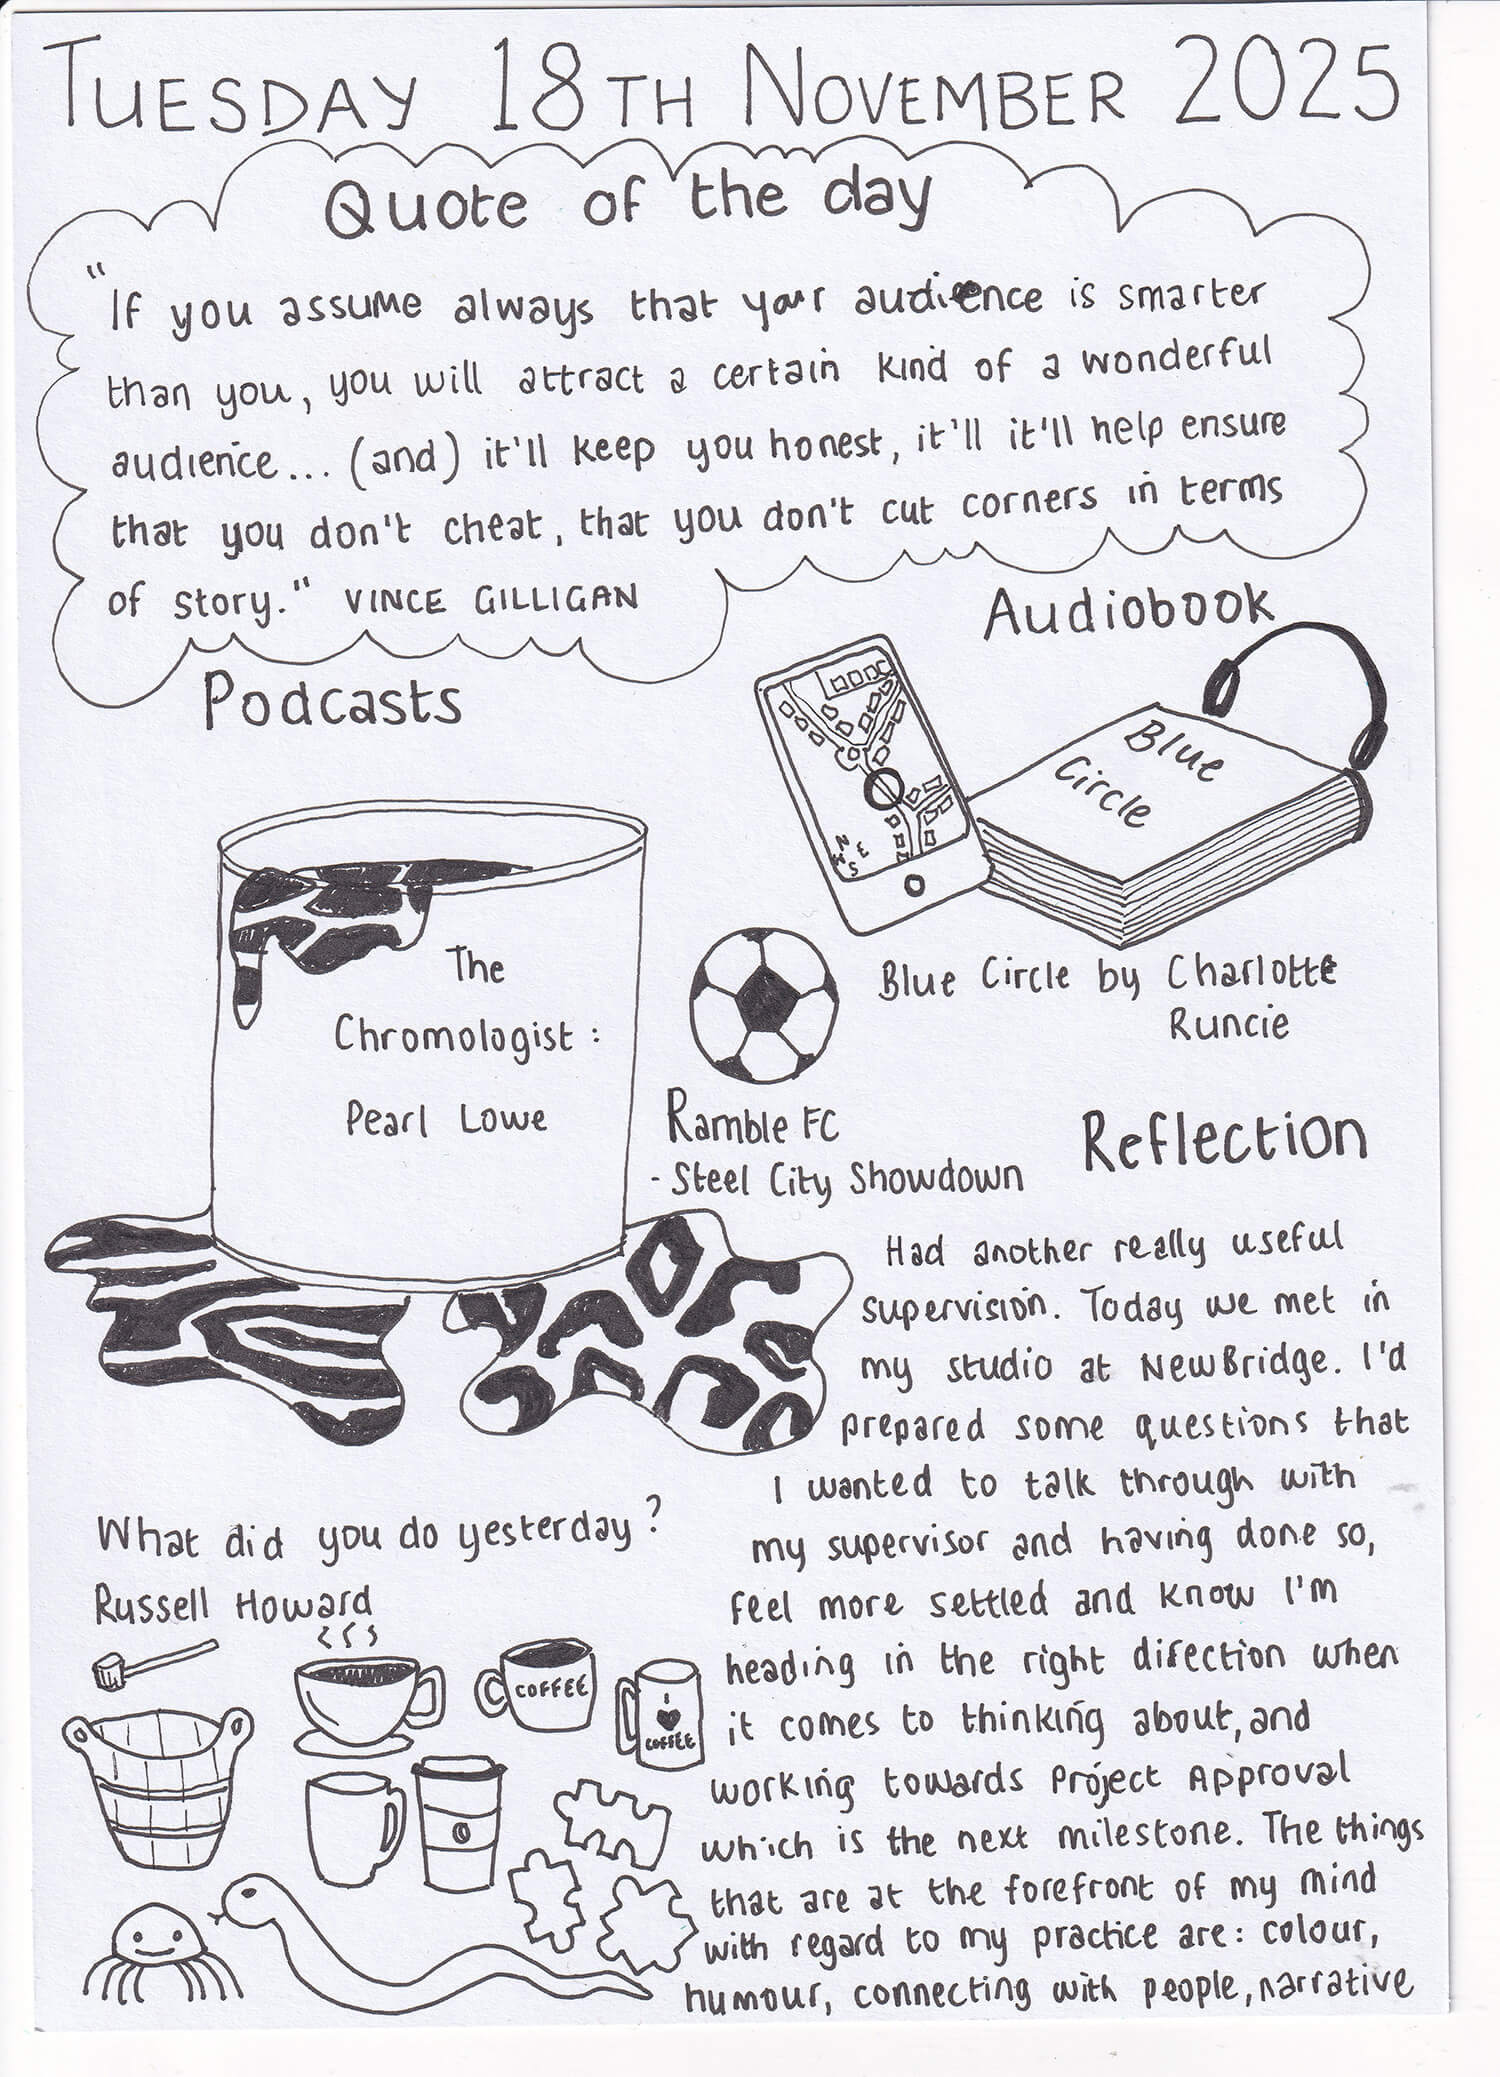 TUESDAY 18TH NOVEMBER 2025
Quote of the day
"If you assume always that your audience is smarter
than you, you will attract a certain kind of a wonderful
audience... (and) it'll keep you honest, it'll it'll help ensure
that you don't cheat, that you don't cut corners in terms
of story." VINCE GILLIGAN
Podcasts
The
Chromologist:
Pearl Lowe
Audiobook
Blue
Circle
N
W E
S
Blue Circle by Charlotte
Runcie
Ramble FC
- Steel City Showdown
What did you do yesterday?
Russell Howard
COFFEE
I
♥
COFFEE
Reflection
Had another really useful
supervision. Today we met in
my studio at NewBridge. I'd
prepared some questions that
I wanted to talk through with
my supervisor and having done so,
feel more settled and know I'm
heading in the right direction when
it comes to thinking about, and
working towards Project Approval
which is the next milestone. The things
that are at the forefront of my mind
with regard to my practice are: colour,
humour, connecting with people, narrative